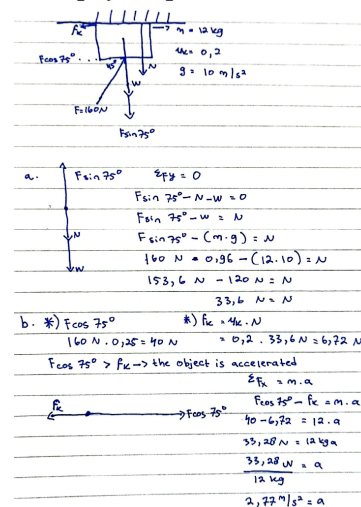 fk → m = 12 kg
Fcos 75° ... μk = 0,2
N
W g = 10 m/s²
F=160N
Fsin 75°
a. Fsin 75° ΣFy = 0
Fsin 75° - N - W = 0
Fsin 75° - W = N
N Fsin 75° - (m.g) = N
W 160 N • 0,96 - (12.10) = N
153,6 N - 120 N = N
33,6 N = N
b. *) Fcos 75° *) fk = μk . N
160 N . 0,25 = 40 N = 0,2 . 33,6 N = 6,72 N
Fcos 75° > fk → the object is accelerated
ΣFx = m.a
fk Fcos 75° Fcos 75° - fk = m.a
40 - 6,72 = 12 . a
33,28 N = 12 kg a
33,28 N = a
12 kg
2,77 m/s² = a